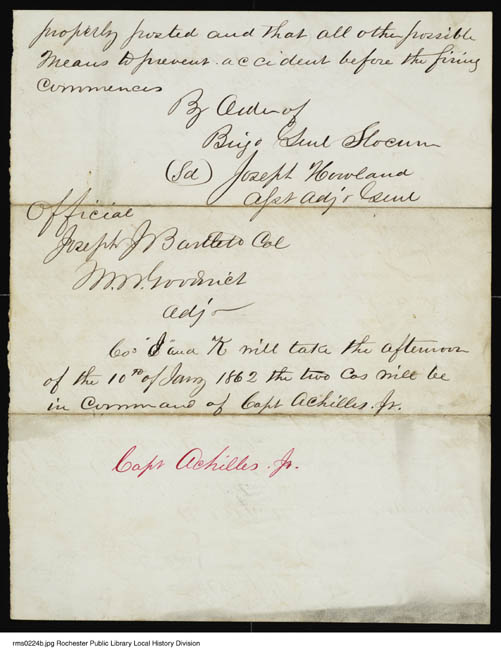 properly posted and that all other possible
means to prevent accident before the firing
commences
By Order of
Brig Genl Slocum
(Sd) Joseph Howland
Asst Adjt Genl
Official
Joseph J Bartlett Col
W.W. Goodrich
Adjt
Cos I and K will take the afternoon
of the 10th of Jany 1862 the two Cos will be
in Command of Capt Achilles. Jr.
Capt Achilles. Jr.
rms0224b.jpg Rochester Public Library Local History Division